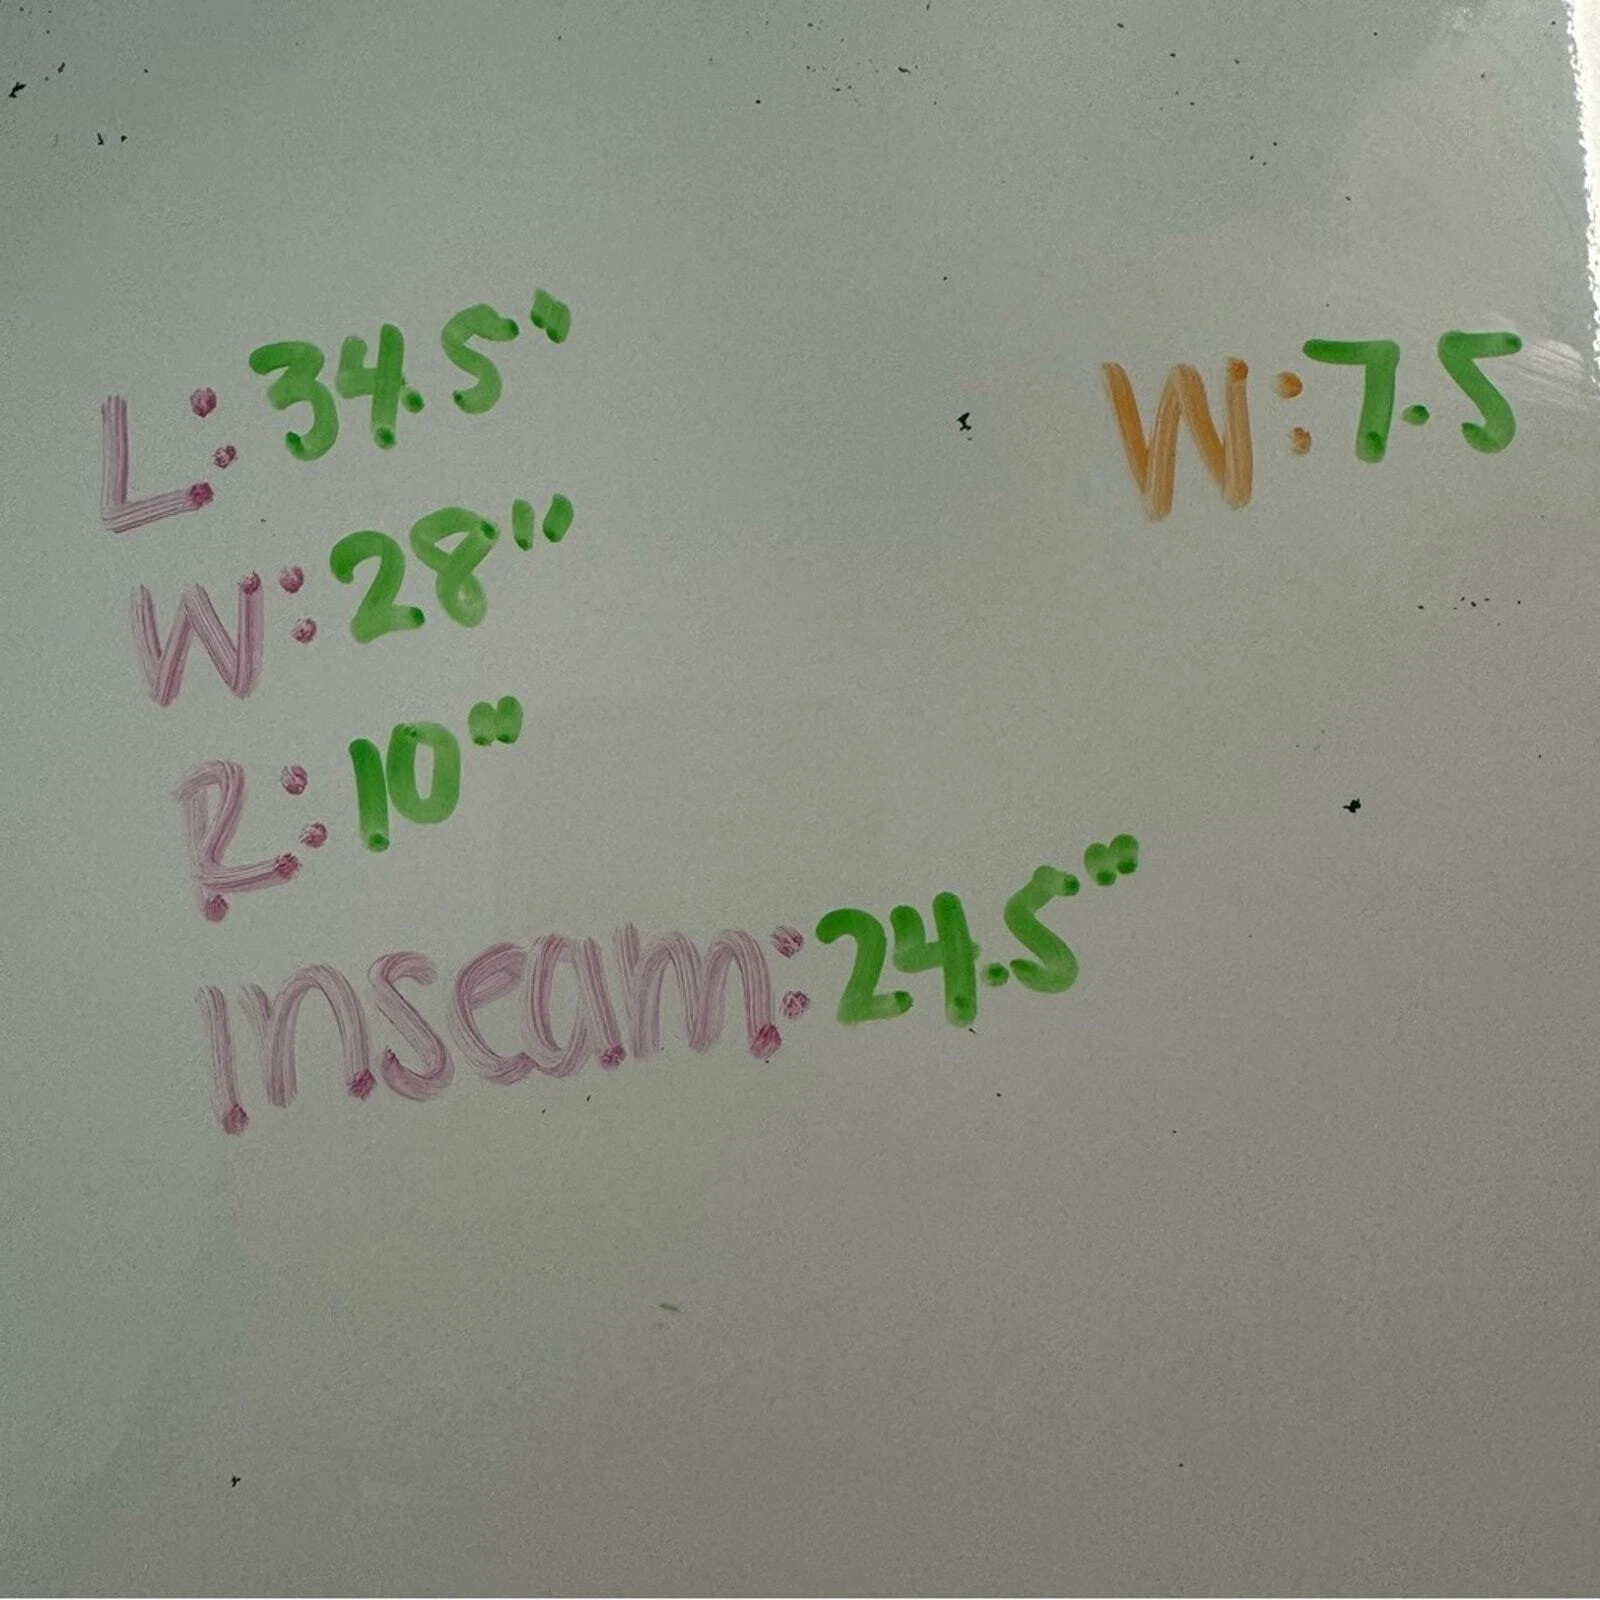 L: 34.5"
W: 28"
R: 10"
inseam: 24.5"
W: 7.5